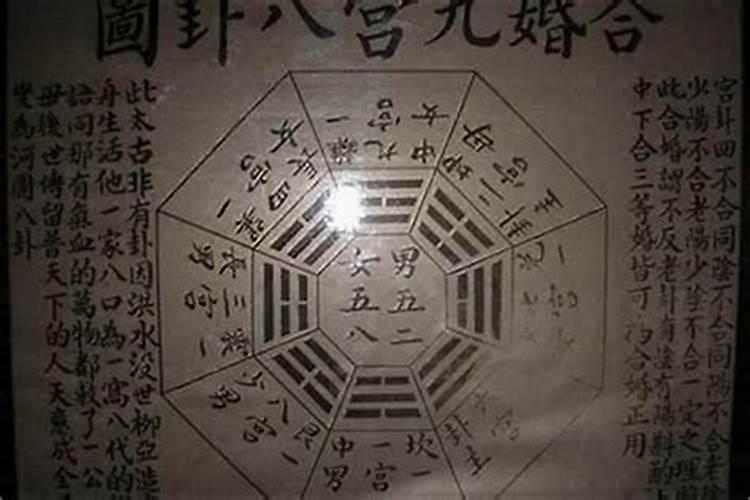 合婚九宮八卦圖
宮卦四不合同陰不合同陽不合老
少陽不合老陽少陰不合一定之理
此合婚謂不反老卦有陰有陽斟酌
中下合三等婚皆可為合婚正用
離一
九宮
中女
坤二宮
母
巽
四宮
長女
男五二
女五八
震一
三宮
長男
艮一
八宮
少男
坎一
一宮
中男
六宮
此太古非有卦因洪水没世柳亞造
舟生活他一家八口為一窩八代的
語同那有氣血的萬物都救了一公
母後世傳留普天下的人天意成全
變為河圖八卦